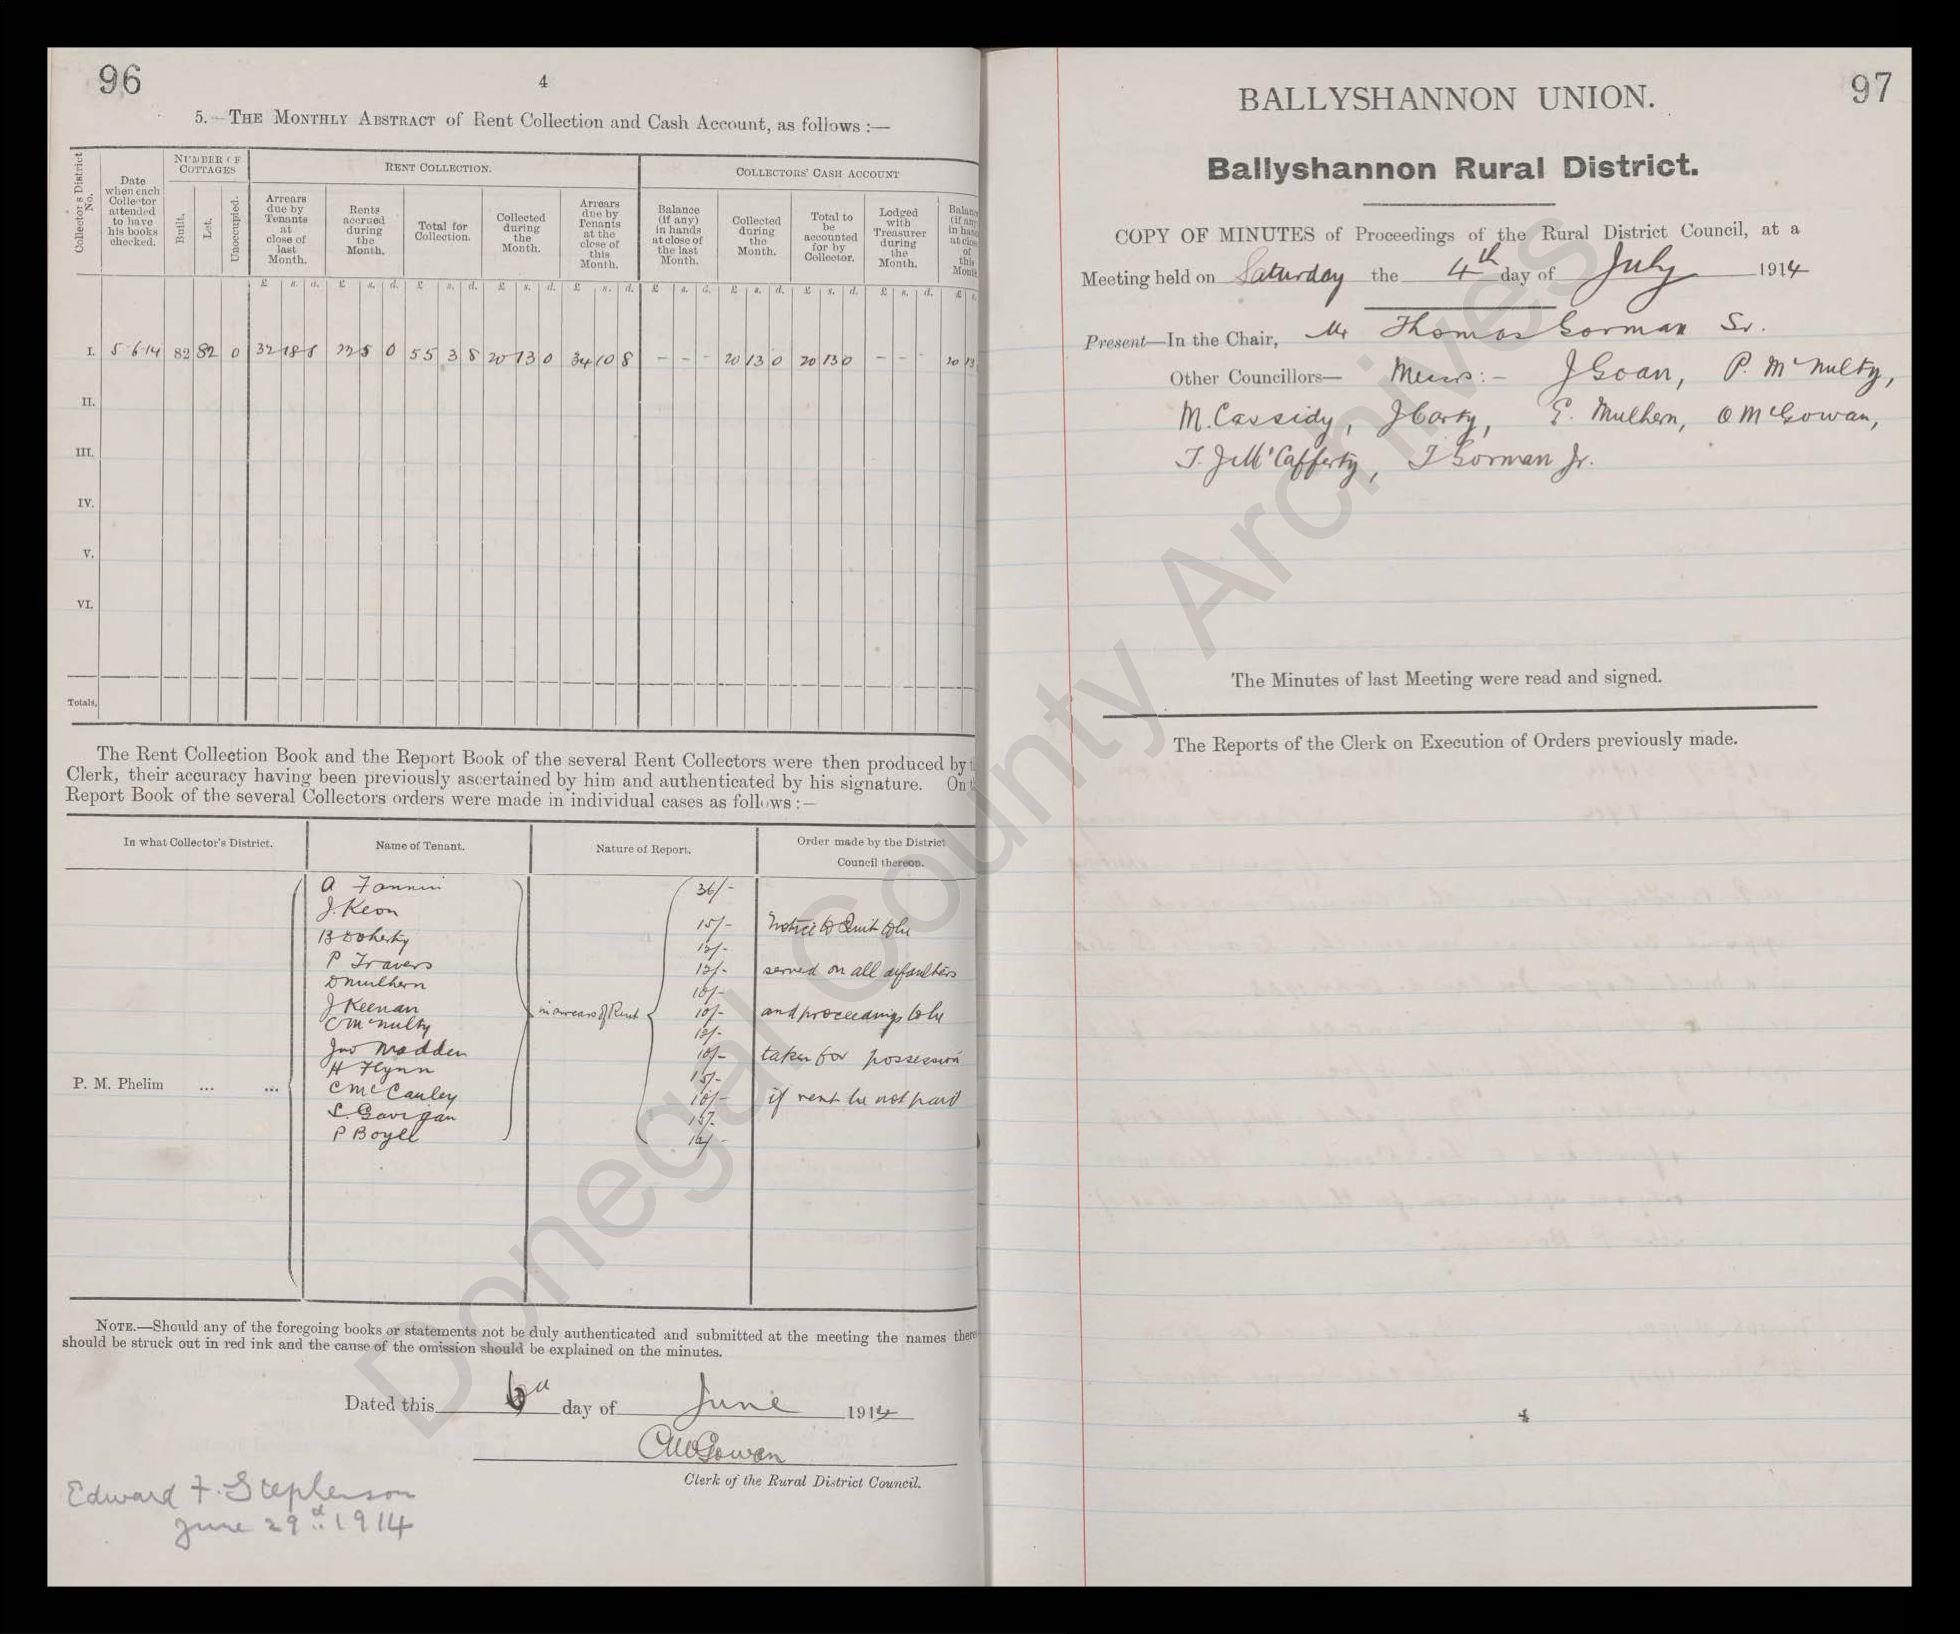 96
4
5.—THE MONTHLY ABSTRACT of Rent Collection and Cash Account, as follows :—
Collector's District No.
Date when each Collector attended to have his books checked.
NUMBER OF COTTAGES
Built.
Let.
Unoccupied.
RENT COLLECTION.
Arrears due by Tenants at close of last Month.
Rents accrued during the Month.
Total for Collection.
Collected during the Month.
Arrears due by Tenants at the close of this Month.
COLLECTORS' CASH ACCOUNT
Balance (if any) in hands at close of the last Month.
Collected during the Month.
Total to be accounted for by Collector.
Lodged with Treasurer during the Month.
Balance (if any in hand at close of this Month
£ s. d. £ s. d. £ s. d. £ s. d. £ s. d. £ s. d. £ s. d. £ s. d. £ s. d. £ s.
I. 5-6-14 82 82 0 32 18 8 22 5 0 55 3 8 20 13 0 34 10 8 - - - 20 13 0 20 13 0 - - - 20 13
II.
III.
IV.
V.
VI.
Totals,
The Rent Collection Book and the Report Book of the several Rent Collectors were then produced by t
Clerk, their accuracy having been previously ascertained by him and authenticated by his signature. On t
Report Book of the several Collectors orders were made in individual cases as follows :—
In what Collector's District.
Name of Tenant.
Nature of Report.
Order made by the District Council thereon.
P. M. Phelim ... ...
A Fannin
J. Keon
B Doherty
P Travers
D Mulhern
J Keenan
C McNulty
Jno Madden
H Flynn
C McCauley
S. Gavigan
P Boyle
in arrears of Rent
36/-
15/-
12/-
12/-
10/-
10/-
12/-
10/-
15/-
10/-
15/-
12/-
Notice to Quit to be
served on all defaulters
and proceedings to be
taken for possession
if rent be not paid
NOTE.—Should any of the foregoing books or statements not be duly authenticated and submitted at the meeting the names there
should be struck out in red ink and the cause of the omission should be explained on the minutes.
Dated this 6th day of June 1914
C McGowan
Clerk of the Rural District Council.
Edward F. Stephenson
June 29th 1914
97
BALLYSHANNON UNION.
Ballyshannon Rural District.
COPY OF MINUTES of Proceedings of the Rural District Council, at a
Meeting held on Saturday the 4th day of July 1914
Present—In the Chair, Mr Thomas Gorman Sr.
Other Councillors— Messrs:- J Goan, P. McNulty,
M. Cassidy, J Carty, E. Mulhern, O McGowan,
T. J McCafferty, T Gorman Jr.
The Minutes of last Meeting were read and signed.
The Reports of the Clerk on Execution of Orders previously made.
Donegal County Archives